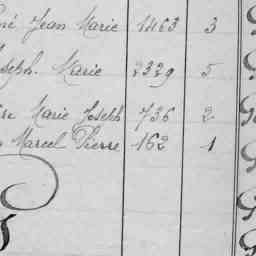 Jean Marie 1463 3
Joseph. Marie 2329 5
Marie Joseph 736 2
Marcel Pierre 162 1